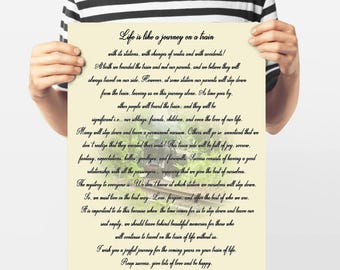 Life is like a journey on a train
with its stations, with changes of routes and with accidents!
At birth we boarded the train and met our parents, and we believe they will
always travel on our side. However, at some station our parents will step down
from the train, leaving us on this journey alone. As time goes by,
other people will board the train; and they will be
significant i.e. our siblings, friends, children, and even the love of our life.
Many will step down and leave a permanent vacuum. Others will go so unnoticed that we
don't realize that they vacated their seats! This train ride will be full of joy, sorrow,
fantasy, expectations, hellos, goodbyes, and farewells. Success consists of having a good
relationship with all the passengers requiring that we give the best of ourselves.
The mystery to everyone is: We don't know at which station we ourselves will step down.
So, we must live in the best way, love, forgive, and offer the best of who we are.
It is important to do this because when the time comes for us to step down and leave our
seat empty, we should leave behind beautiful memories for those who
will continue to travel on the train of life without us.
I wish you a joyful journey for the coming years on your train of life.
Reap success, give lots of love and be happy.